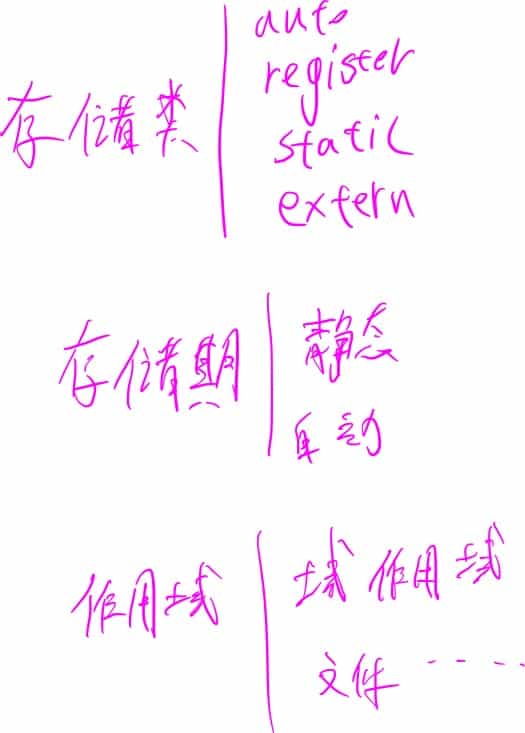 存储类
auto
register
static
extern
存储期
静态
自动
作用域
域作用域
文件 ·····